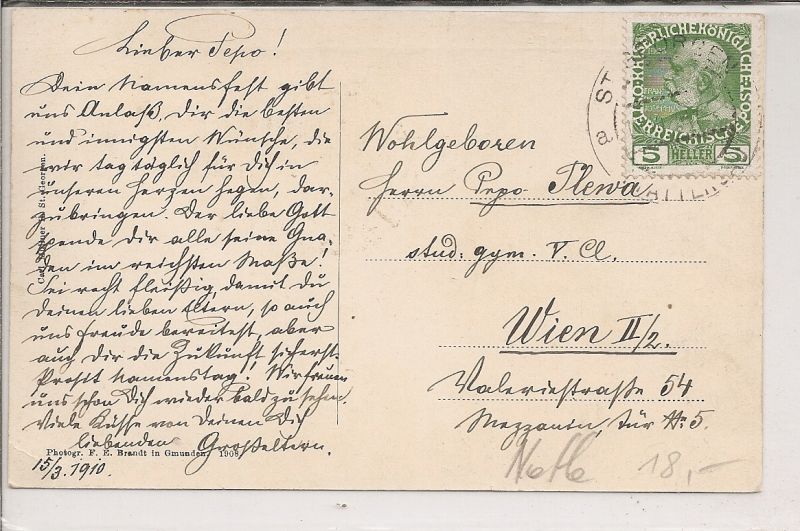 Lieber Pepo!
Dein Namensfest gibt
uns Anlaß, Dir die besten
und innigsten Wünsche, die
wir tag täglich für Dich in
unseren Herzen hegen, dar-
zubringen. Der liebe Gott
spende Dir alle seine Gna-
den im reichsten Maße!
Sei recht fleißig, damit du
Deinen lieben Eltern, so auch
uns Freude bereitest, aber
auch Dir die Zukunft sicherst.
Prosit Namenstag! Wir freuen
uns schon Dich wieder bald zu sehn.
Viele Küsse von Deinen Dich
liebenden Großeltern.
Photogr. F. E. Brandt in Gmunden. 1908.
15/3. 1910.
in St. Georgen.
KAISERLICHEKÖNIGLICHE
POST
ÖSTERREICHISCHE
5 HELLER 5
ATTERGAU
Wohlgeboren
Herrn Pepo Plewa
stud. gym. V. Cl.
Wien II/2.
Valeriestraße 54
Mezzanin, Tür № 5.
18,-